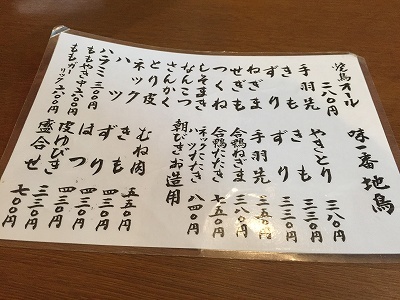 味一番 地鳥
焼鳥オール
二八〇円
手羽先
きも
ずり
ねぎま
せぎも
つくね
しそまき
なんこつ
さんかく
とり皮
ネック
ハツ
ハラミ 三〇〇円
ももやき中 二〇〇円
ももガーリック 二〇〇円
やきとり 三八〇円
きも 三三〇円
ずり 三三〇円
手羽先 三五〇円
合鴨ねぎま 三八〇円
合鴨たたき 七五〇円
ネックたたき
ハツたたき 八四〇円
朝びきお造用
むね肉 五五〇円
きも 四三〇円
ずり 四三〇円
はつ 四三〇円
皮ゆびき 三三〇円
盛合せ 七〇〇円